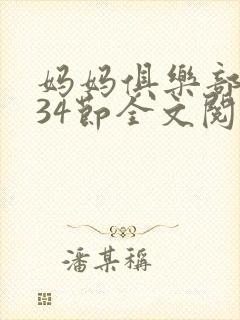 妈妈俱樂部
34節全文閱
潘某稱